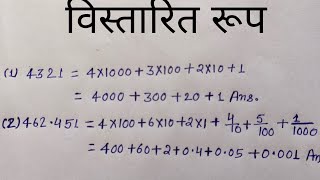 विस्तारित रूप
(1) 4321 = 4×1000+3×100+2×10+1
= 4000+300+20+1 Ans.
(2) 462.451 = 4×100+6×10+2×1+4/10+5/100+1/1000
= 400+60+2+0.4+0.05+0.001 Ans